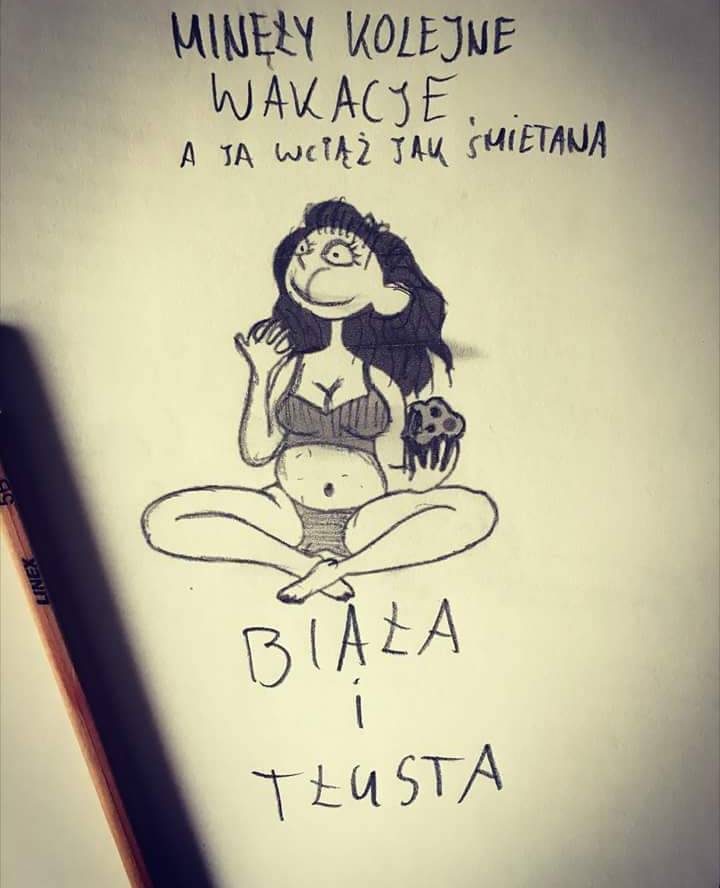 MINĘŁY KOLEJNE
WAKACJE
A JA WCIĄŻ JAK ŚMIETANA
BIAŁA
i
TŁUSTA
LINEX
5B